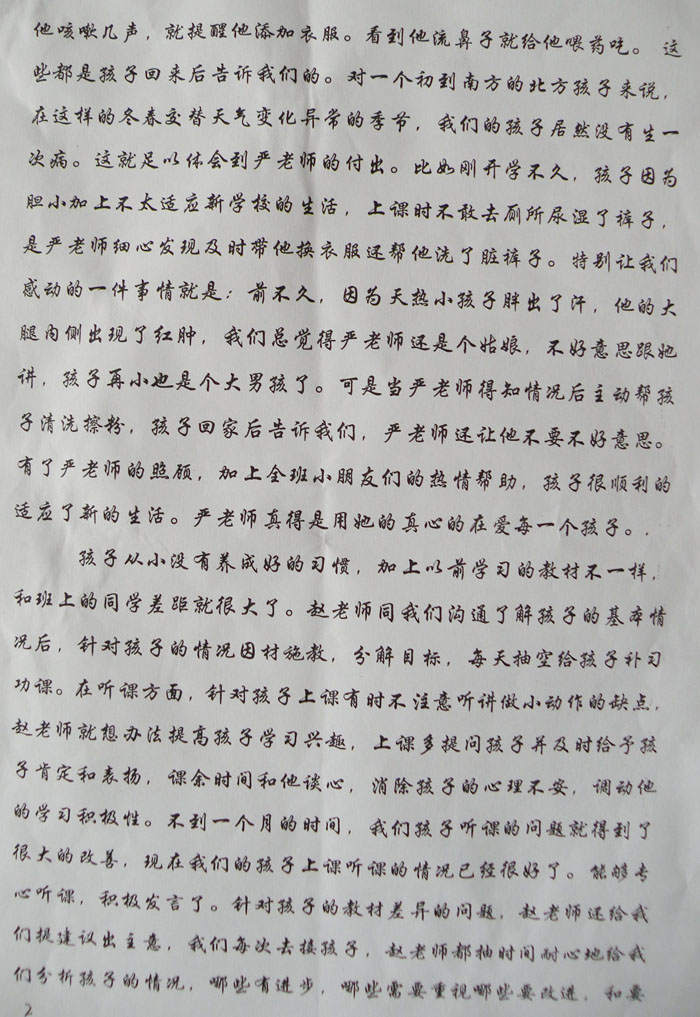 他咳嗽几声，就提醒他添加衣服。看到他流鼻子就给他喂药吃。 这
些都是孩子回来后告诉我们的。对一个初到南方的北方孩子来说，
在这样的冬春交替天气变化异常的季节，我们的孩子居然没有生一
次病。这就足以体会到严老师的付出。比如刚开学不久，孩子因为
胆小加上不太适应新学校的生活，上课时不敢去厕所尿湿了裤子，
是严老师细心发现及时带他换衣服还帮他洗了脏裤子。特别让我们
感动的一件事情就是：前不久，因为天热小孩子胖出了汗，他的大
腿内侧出现了红肿，我们总觉得严老师还是个姑娘，不好意思跟她
讲，孩子再小也是个大男孩了。可是当严老师得知情况后主动帮孩
子清洗擦粉，孩子回家后告诉我们，严老师还让他不要不好意思。
有了严老师的照顾，加上全班小朋友们的热情帮助，孩子很顺利的
适应了新的生活。严老师真得是用她的真心的在爱每一个孩子。.
孩子从小没有养成好的习惯，加上以前学习的教材不一样，
和班上的同学差距就很大了。赵老师同我们沟通了解孩子的基本情
况后，针对孩子的情况因材施教，分解目标，每天抽空给孩子补习
功课。在听课方面，针对孩子上课有时不注意听讲做小动作的缺点，
赵老师就想办法提高孩子学习兴趣，上课多提问孩子并及时给予孩
子肯定和表扬，课余时间和他谈心，消除孩子的心理不安，调动他
的学习积极性。不到一个月的时间，我们孩子听课的问题就得到了
很大的改善，现在我们的孩子上课听课的情况已经很好了。能够专
心听课，积极发言了。针对孩子的教材差异的问题，赵老师还给我
们提建议出主意，我们每次去接孩子，赵老师都抽时间耐心地给我
们分析孩子的情况，哪些有进步，哪些需要重视哪些要改进，和要
2